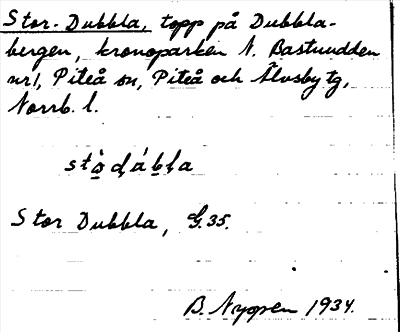 Stor-Dubbla, topp på Dubbla-
bergen, kronoparken N. Bastuudden
nr 1, Piteå sn, Piteå och Älvsby tg,
Norrb. l.
Stor Dubbla, G.35.
B. Nygren 1934.